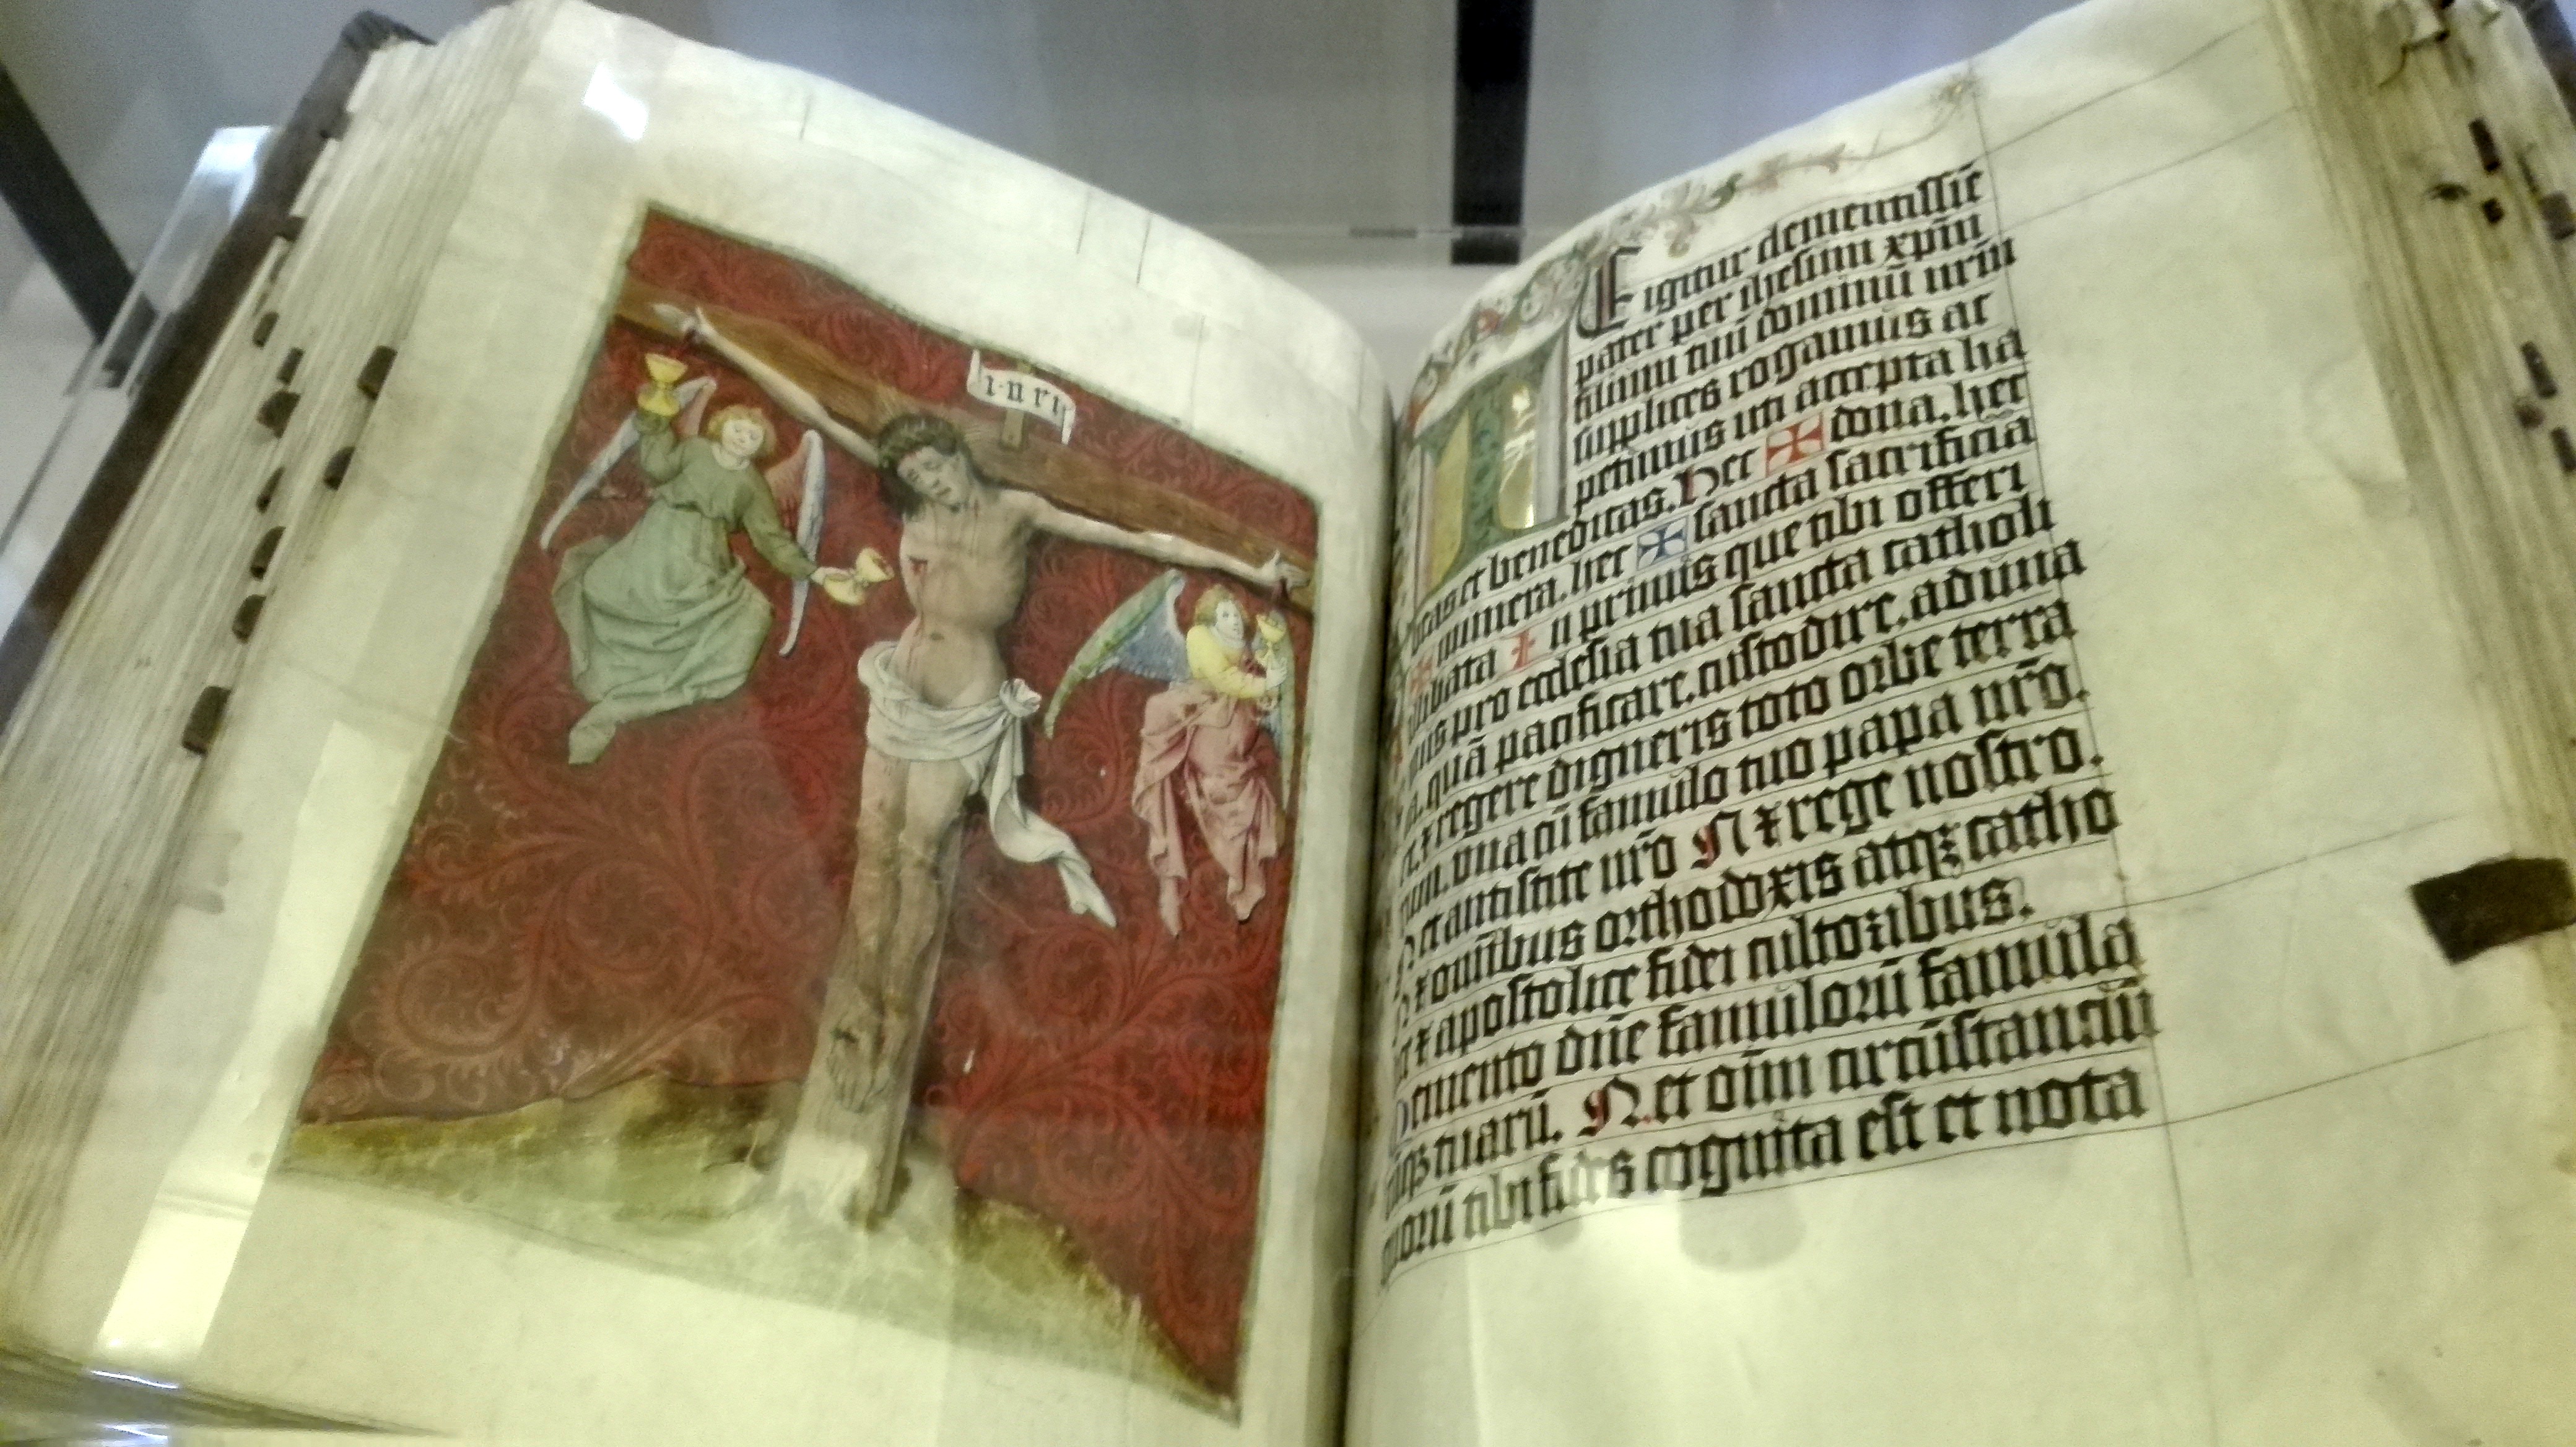 i·n·ri
E igitur clementissīe
pater per ihesum xp̄m
filium tuū dominū nr̄m
supplices rogamus ac
petimus uti accepta ha
beas et benedicas. Hec ✠ dona. hec
✠ munera. hec ✠ sancta sacrificia
illibata In primis que tibi offeri
mus pro ecclesia tua sancta catholi
ca. quā pacificare. custodire. aduna
re. ⁊ regere digneris toto orbe terra
rum. una cū famulo tuo papa nr̄o.
N et antistite nr̄o N ⁊ rege nostro.
N ⁊ omībus orthodoxis atqꝫ catho
lice ⁊ apostolice fidei cultoribus.
Memento dn̄e famulorū famula
rūqꝫ tuarū. N. et oīm circūstanciū
quorū tibi fides cognita est et nota